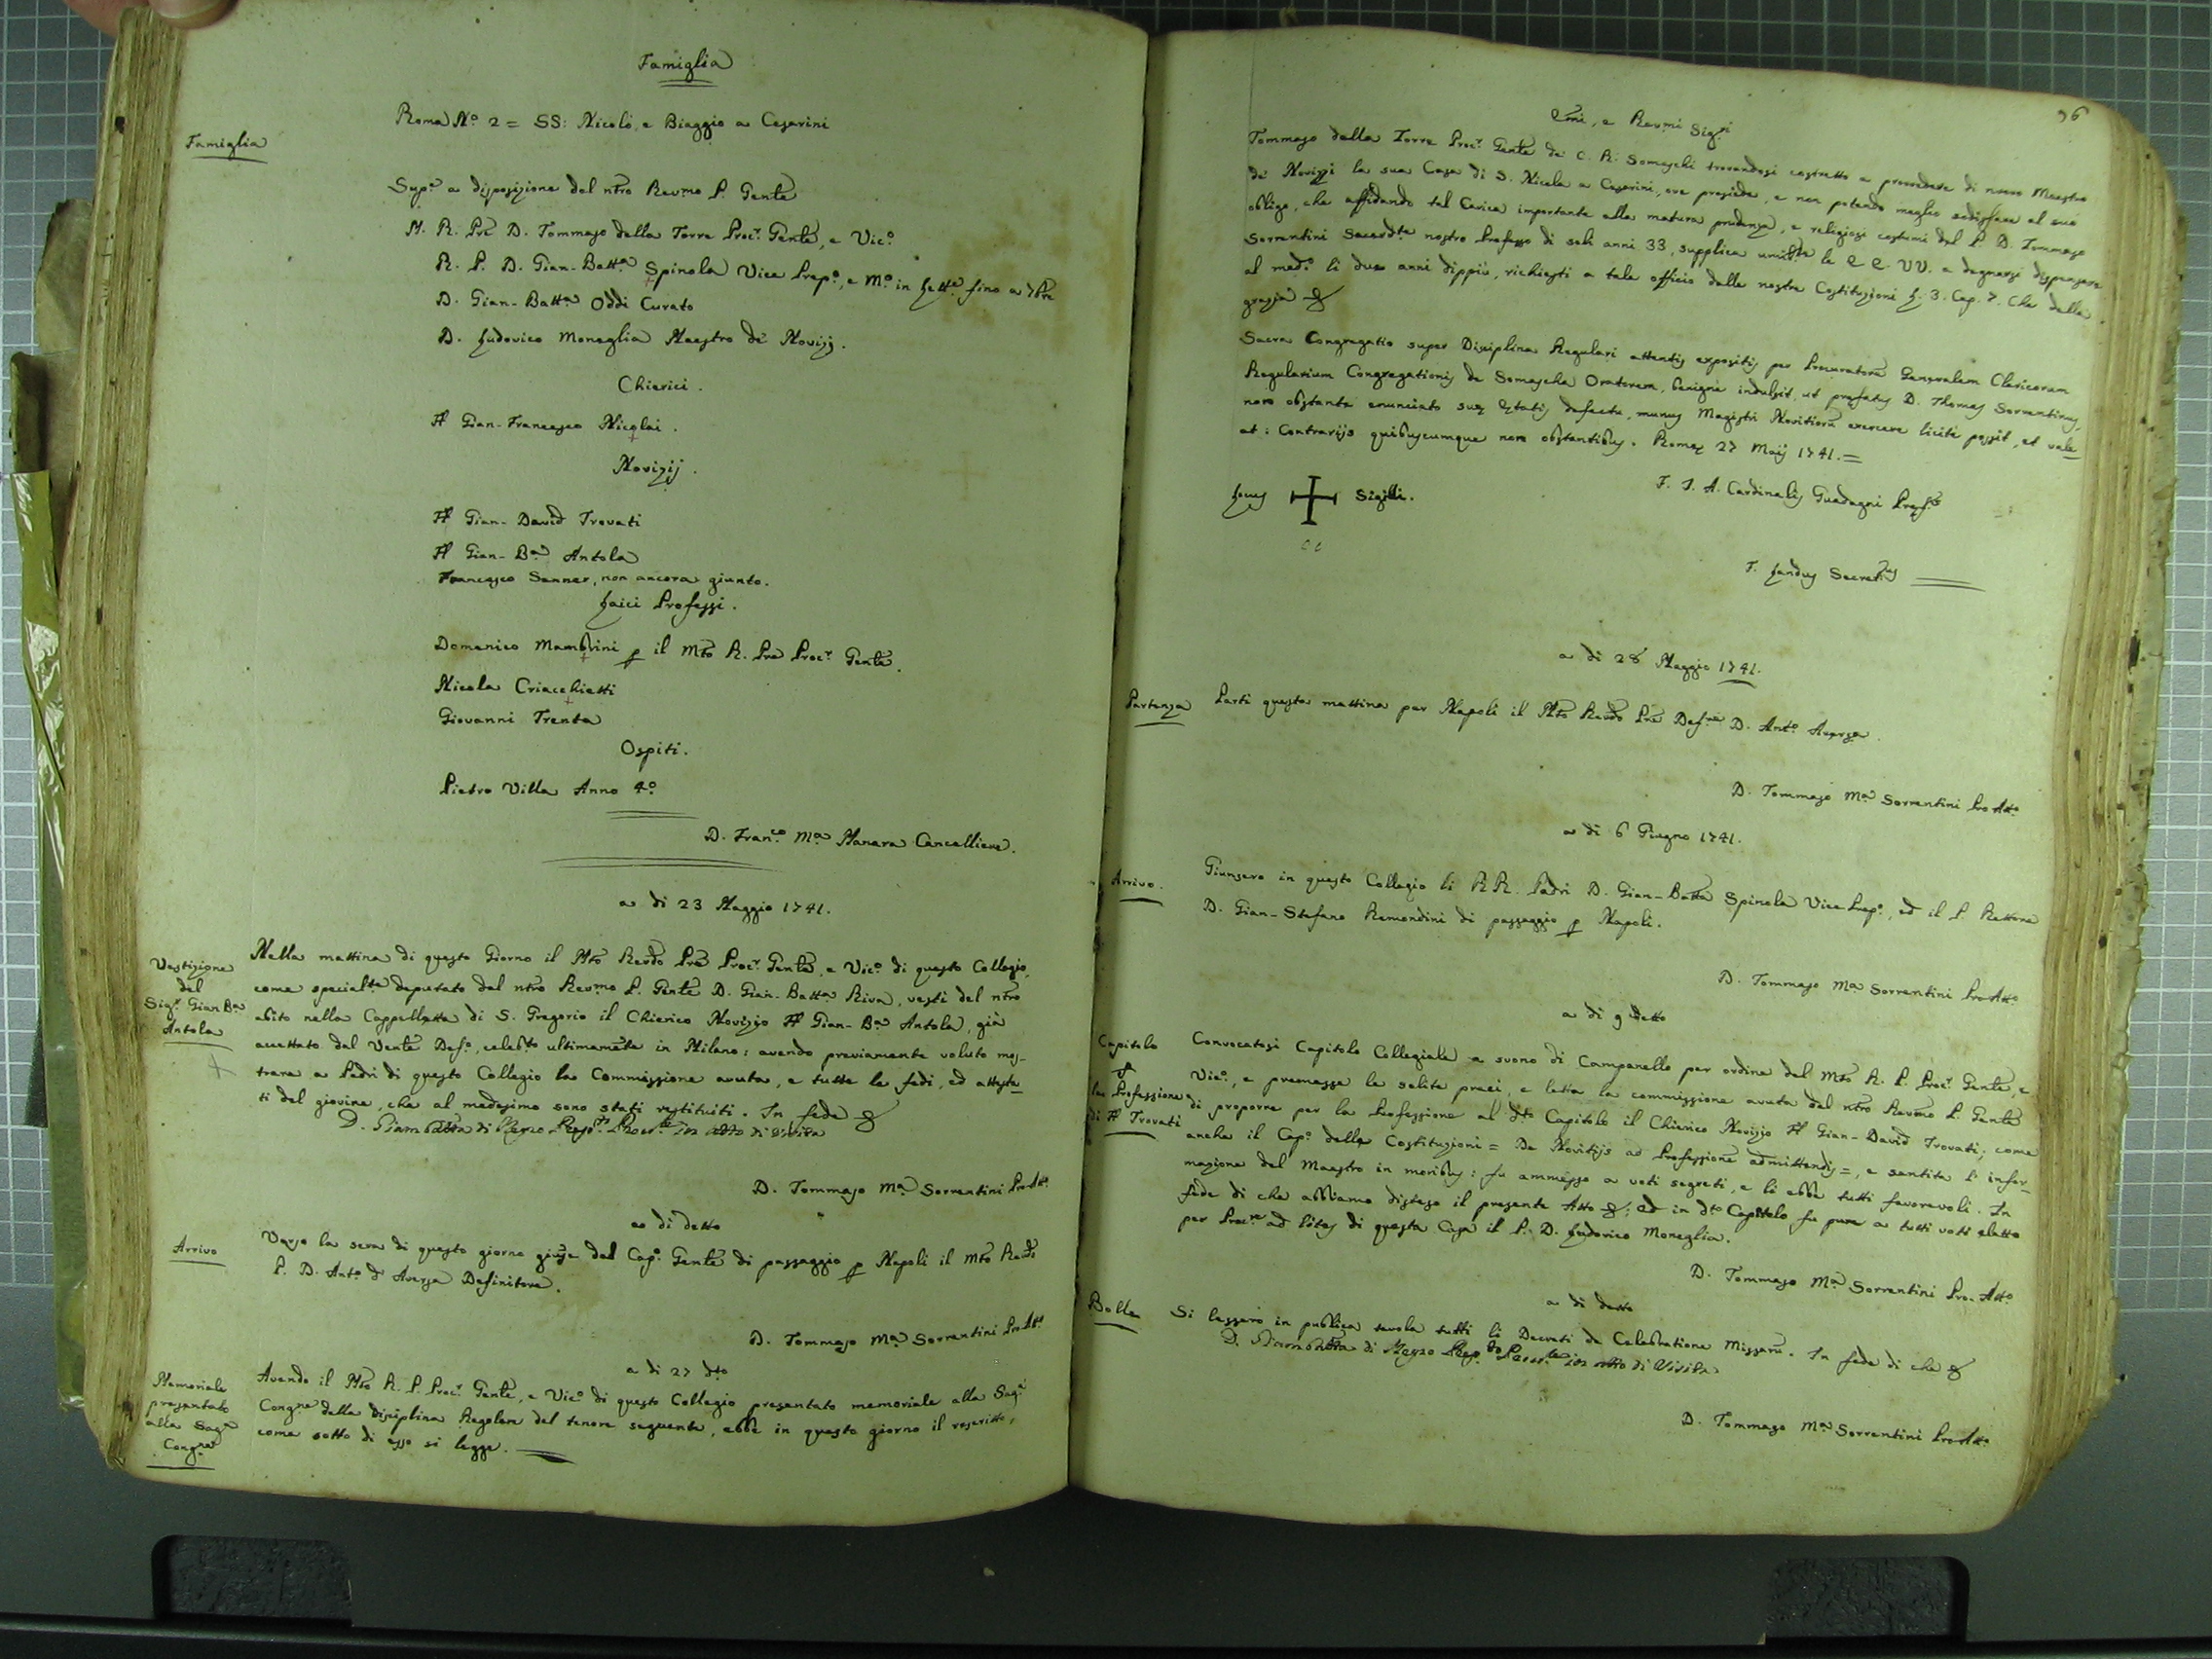 Famiglia
Famiglia
Roma N.º 2 = SS: Nicolò, e Biaggio a Cesarini
Sup.e a disposizione del nr̃o Reṽmo P. Gen̄le
M. R. Pr̃e D. Tommaso della Torre Proc.r Gen̄le, e Vic.º
R. P. D. Gian-Batt.a Spinola Vice Prep.º, e M.º in Lett.e fino a 7bre
D. Gian-Batt.a Oddi Curato
D. Ludovico Moneglia Maestro de' Novizj.
Chierici.
Gian-Francesco Nicolai.
Novizij.
Gian-David Trovati
Gian-B.a Antola
Francesco Sanner, non ancora giunto.
Laici Professi.
Domenico Mambrini p il M̃to R. Pr̃e Proc.r Gen̄le.
Nicola Criacchietti
Giovanni Trenta
Ospiti.
Pietro Villa Anno 4.º
D. Fran.co M.a Manara Cancelliere.
a di 23 Maggio 1741.
Vestizione
del
Sig.r Gian B.a
Antola
Nella mattina di questo Giorno il M̃to Reṽdo Pr̃e Proc.r Gen̄le, e Vic.º di questo Collegio,
come special.te deputato dal nr̃o Reṽmo P. Gen̄le D. Gian-Batt.a Riva, vestì del nr̃o
abito nella Cappelletta di S. Gregorio il Chierico Novizio Gian-B.a Antola, già
accettato dal Ven̄le Def.º, celeb.to ultimamẽte in Milano: avendo previamente voluto mos-
trare a Padri di questo Collegio la Commissione avuta, e tutte le fedi, ed attesta-
ti del giovine, che al medesimo sono stati restituiti. In fede &
D. Giambatta di Negro Prep.to Prov.le in atto di visita
D. Tommaso M.a Sorrentini Pro Att.º
a di detto
Arrivo
Verso la sera di questo giorno giũse dal Cap.º Gen̄le di passaggio p Napoli il M̃to Reṽdo
P. D. Ant.º d' Aversa Definitore.
D. Tommaso M.a Sorrentini Pro Att.º
a di 27 d.to
Memoriale
presentato
alla Sag.a
Cong.ne
Avendo il M̃to R. P. Proc.r Gen̄le, e Vic.º di questo Collegio presentato memoriale alla Sag.a
Cong.ne della disciplina Regolare del tenore seguente, ebbe in questo giorno il rescritto,
come sotto di esso si legge.
96
Em̃i, e Reṽmi Sig.ri
Tommaso della Torre Proc.r Gen̄le de' C. R. Somaschi trovandosi costretto a provvedere di nuovo Maestro
de' Novizzi la sua Casa di S. Nicola a Cesarini, ove presiede, e non potendo meglio sodisfare al suo
obligo, che affidando tal Carica importante alla matura prudenza, e religiosi costumi del P. D. Tommaso
Sorrentini Sacerd.te nostro Professo di soli anni 33, supplica umil.te le E E. VV. a degnarsi dispensare
al med.º li due anni dippiù, richiesti a tale officio dalle nostre Costituzioni L. 3. Cap. 7. Che della
grazia &
Sacra Congregatio super Disciplina Regulari attentis expositis per Procuratorẽ Generalem Clericorum
Regularium Congregationis de Somascha Oratorem, benigne indulsit, ut prefatus D. Thomas Sorrentinus,
non obstante enunciato suę ętatis defectu, munus Magistri Novitiorũ exercere licitè possit, et vale-
at: Contrarijs quibuscumque non obstantibus. Romę 27 Maij 1741. =
Locus Sigilli.
F. J. A. Cardinalis Guadagni Pręf.s
F. Landus Secret.us
a di 28 Maggio 1741.
Partenza
Partì questa mattina per Napoli il M̃to Reṽdo Pr̃e Def.re D. Ant.º Aversa.
D. Tommaso M.a Sorrentini Pro Att.º
a di 6 Giugno 1741.
Arrivo.
Giunsero in questo Collegio li RR. Padri D. Gian-Batta Spinola Vice Prep.º, ed il P. Rettore
D. Gian-Stefano Remondini di passaggio p Napoli.
D. Tommaso M.a Sorrentini Pro Att.º
a di 9 detto
Capitolo
p
la Professione
di Trovati
Convocatosi Capitolo Collegiale a suono di Campanello per ordine del M̃to R. P. Proc.r Gen̄le, e
Vic.º, e premesse le solite preci, e letta la commissione avuta dal nr̃o Reṽmo P. Gen̄le
di proporre per la Professione al d.to Capitolo il Chierico Novizio Gian-David Trovati; come
anche il Cap.º delle Costituzioni = De Novitijs ad Professionẽ admittendis =, e sentita l' infor-
mazione del Maestro in moribus: fu ammesso a voti segreti, e li ebbe tutti favorevoli. In
fede di che abbiamo disteso il presente Atto &; ed in d.to Capitolo fu pure a tutti voti eletto
per Proc.re ad lites di questa Casa il P. D. Ludovico Moneglia.
D. Tommaso M.a Sorrentini Pro-Att.º
a di detto
Bolle
Si lessero in publica tavola tutti li Decreti de Celebratione Missarũ. In fede di che &
D. Giambatta di Negro Prep.to Prov.le in atto di Visita
D. Tommaso M.a Sorrentini Pro Att.º